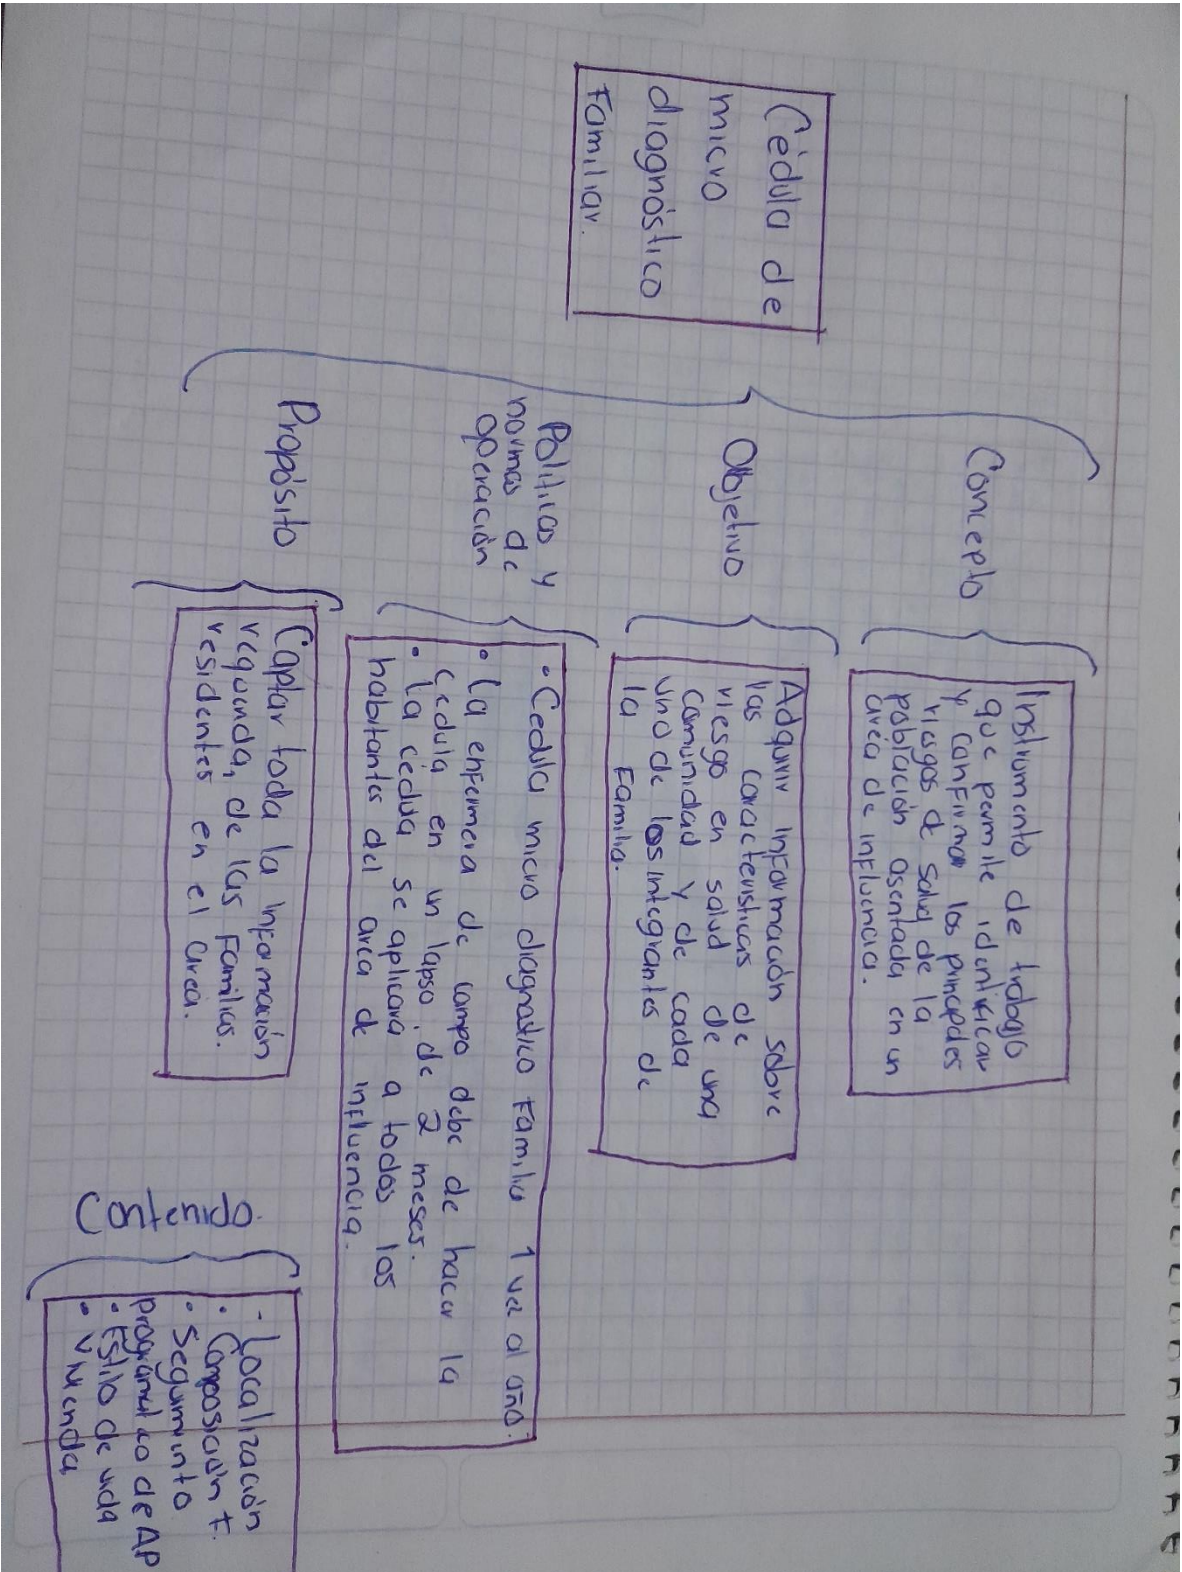 Cédula de
micro
diagnóstico
Familiar.
Concepto
Instrumento de trabajo
que permite identificar
y confirmar los principales
riesgos de salud de la
población asentada en un
área de influencia.
Objetivo
Adquirir información sobre
las caracteristicas de
riesgo en salud de una
comunidad y de cada
uno de los integrantes de
la Familia.
Politicas y
normas de
operación
• Cedula micro diagnostico Familiar 1 vez al año.
• La enfermera de campo debe de hacer la
cédula en un lapso de 2 meses.
• La cédula se aplicara a todos los
habitantes del área de influencia.
Propósito
Captar toda la información
requerida, de las Familias.
residentes en el área.
Contenido.
- Localización
• Composición F.
• Seguimiento
programatico de AP
• Estilo de vida
• Vivienda